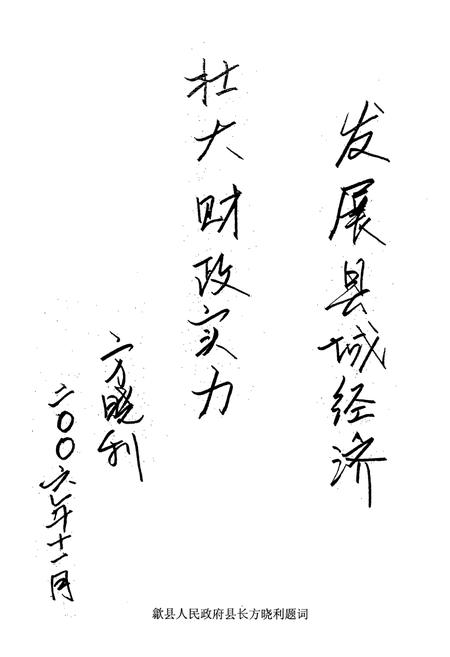 发展县域经济
壮大财政实力
方晓利
二〇〇六年十一月
歙县人民政府县长方晓利题词